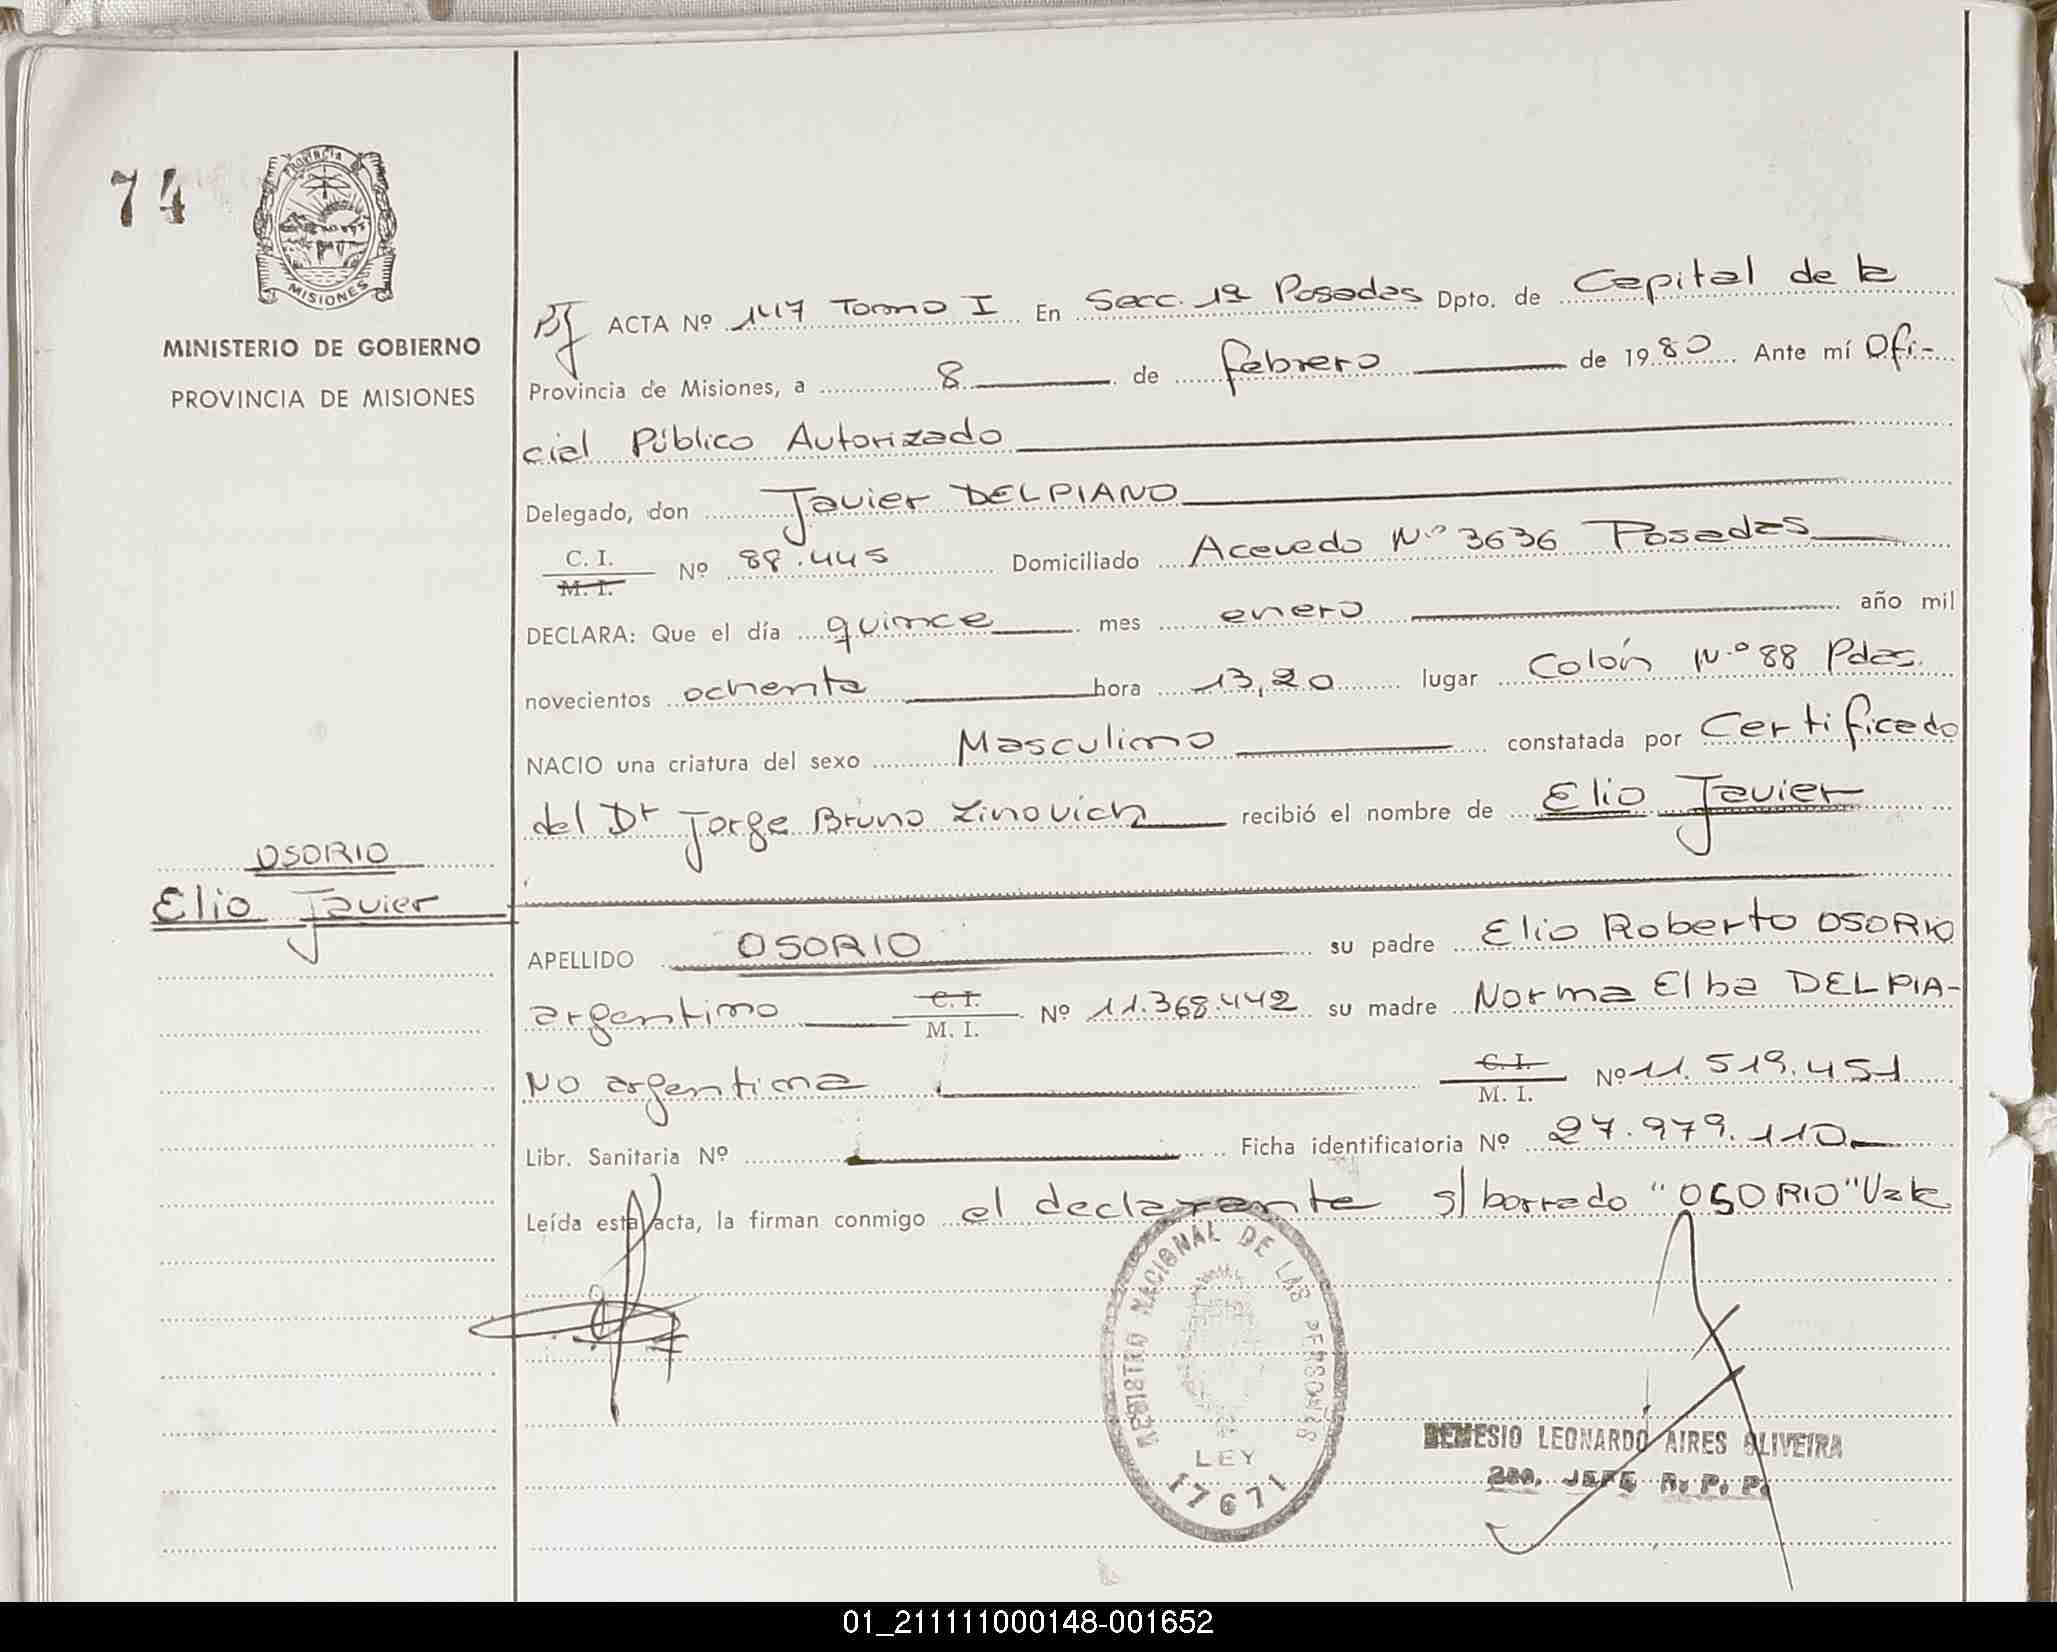 74
PROVINCIA
MISIONES
MINISTERIO DE GOBIERNO
PROVINCIA DE MISIONES
OSORIO
Elio Javier
ACTA Nº 147 Tomo I En Secc. 1ª Posadas Dpto. de Capital de la
Provincia de Misiones, a 8 de febrero de 1980 Ante mí Ofi-
cial Público Autorizado
Delegado, don Javier DELPIANO
C. I.
M. I. Nº 88.445 Domiciliado Acevedo Nº 3636 Posadas
DECLARA: Que el día quince mes enero año mil
novecientos ochenta hora 13,20 lugar Colón Nº 88 Pdas.
NACIO una criatura del sexo Masculino constatada por Certificado
del Dr Jorge Bruno Zinovich recibió el nombre de Elio Javier
APELLIDO OSORIO su padre Elio Roberto OSORIO
argentino C. I. M. I. Nº 11.368.442 su madre Norma Elba DELPIA-
NO argentina C. I. M. I. Nº 11.519.451
Libr. Sanitaria Nº Ficha identificatoria Nº 27.979.110
Leída esta acta, la firman conmigo el declarante s/ borrado "OSORIO" Vale
REGISTRO NACIONAL DE LAS PERSONAS
LEY
17671
NEMESIO LEONARDO AIRES OLIVEIRA
2do. JEFE R. P. P.
01_211111000148-001652